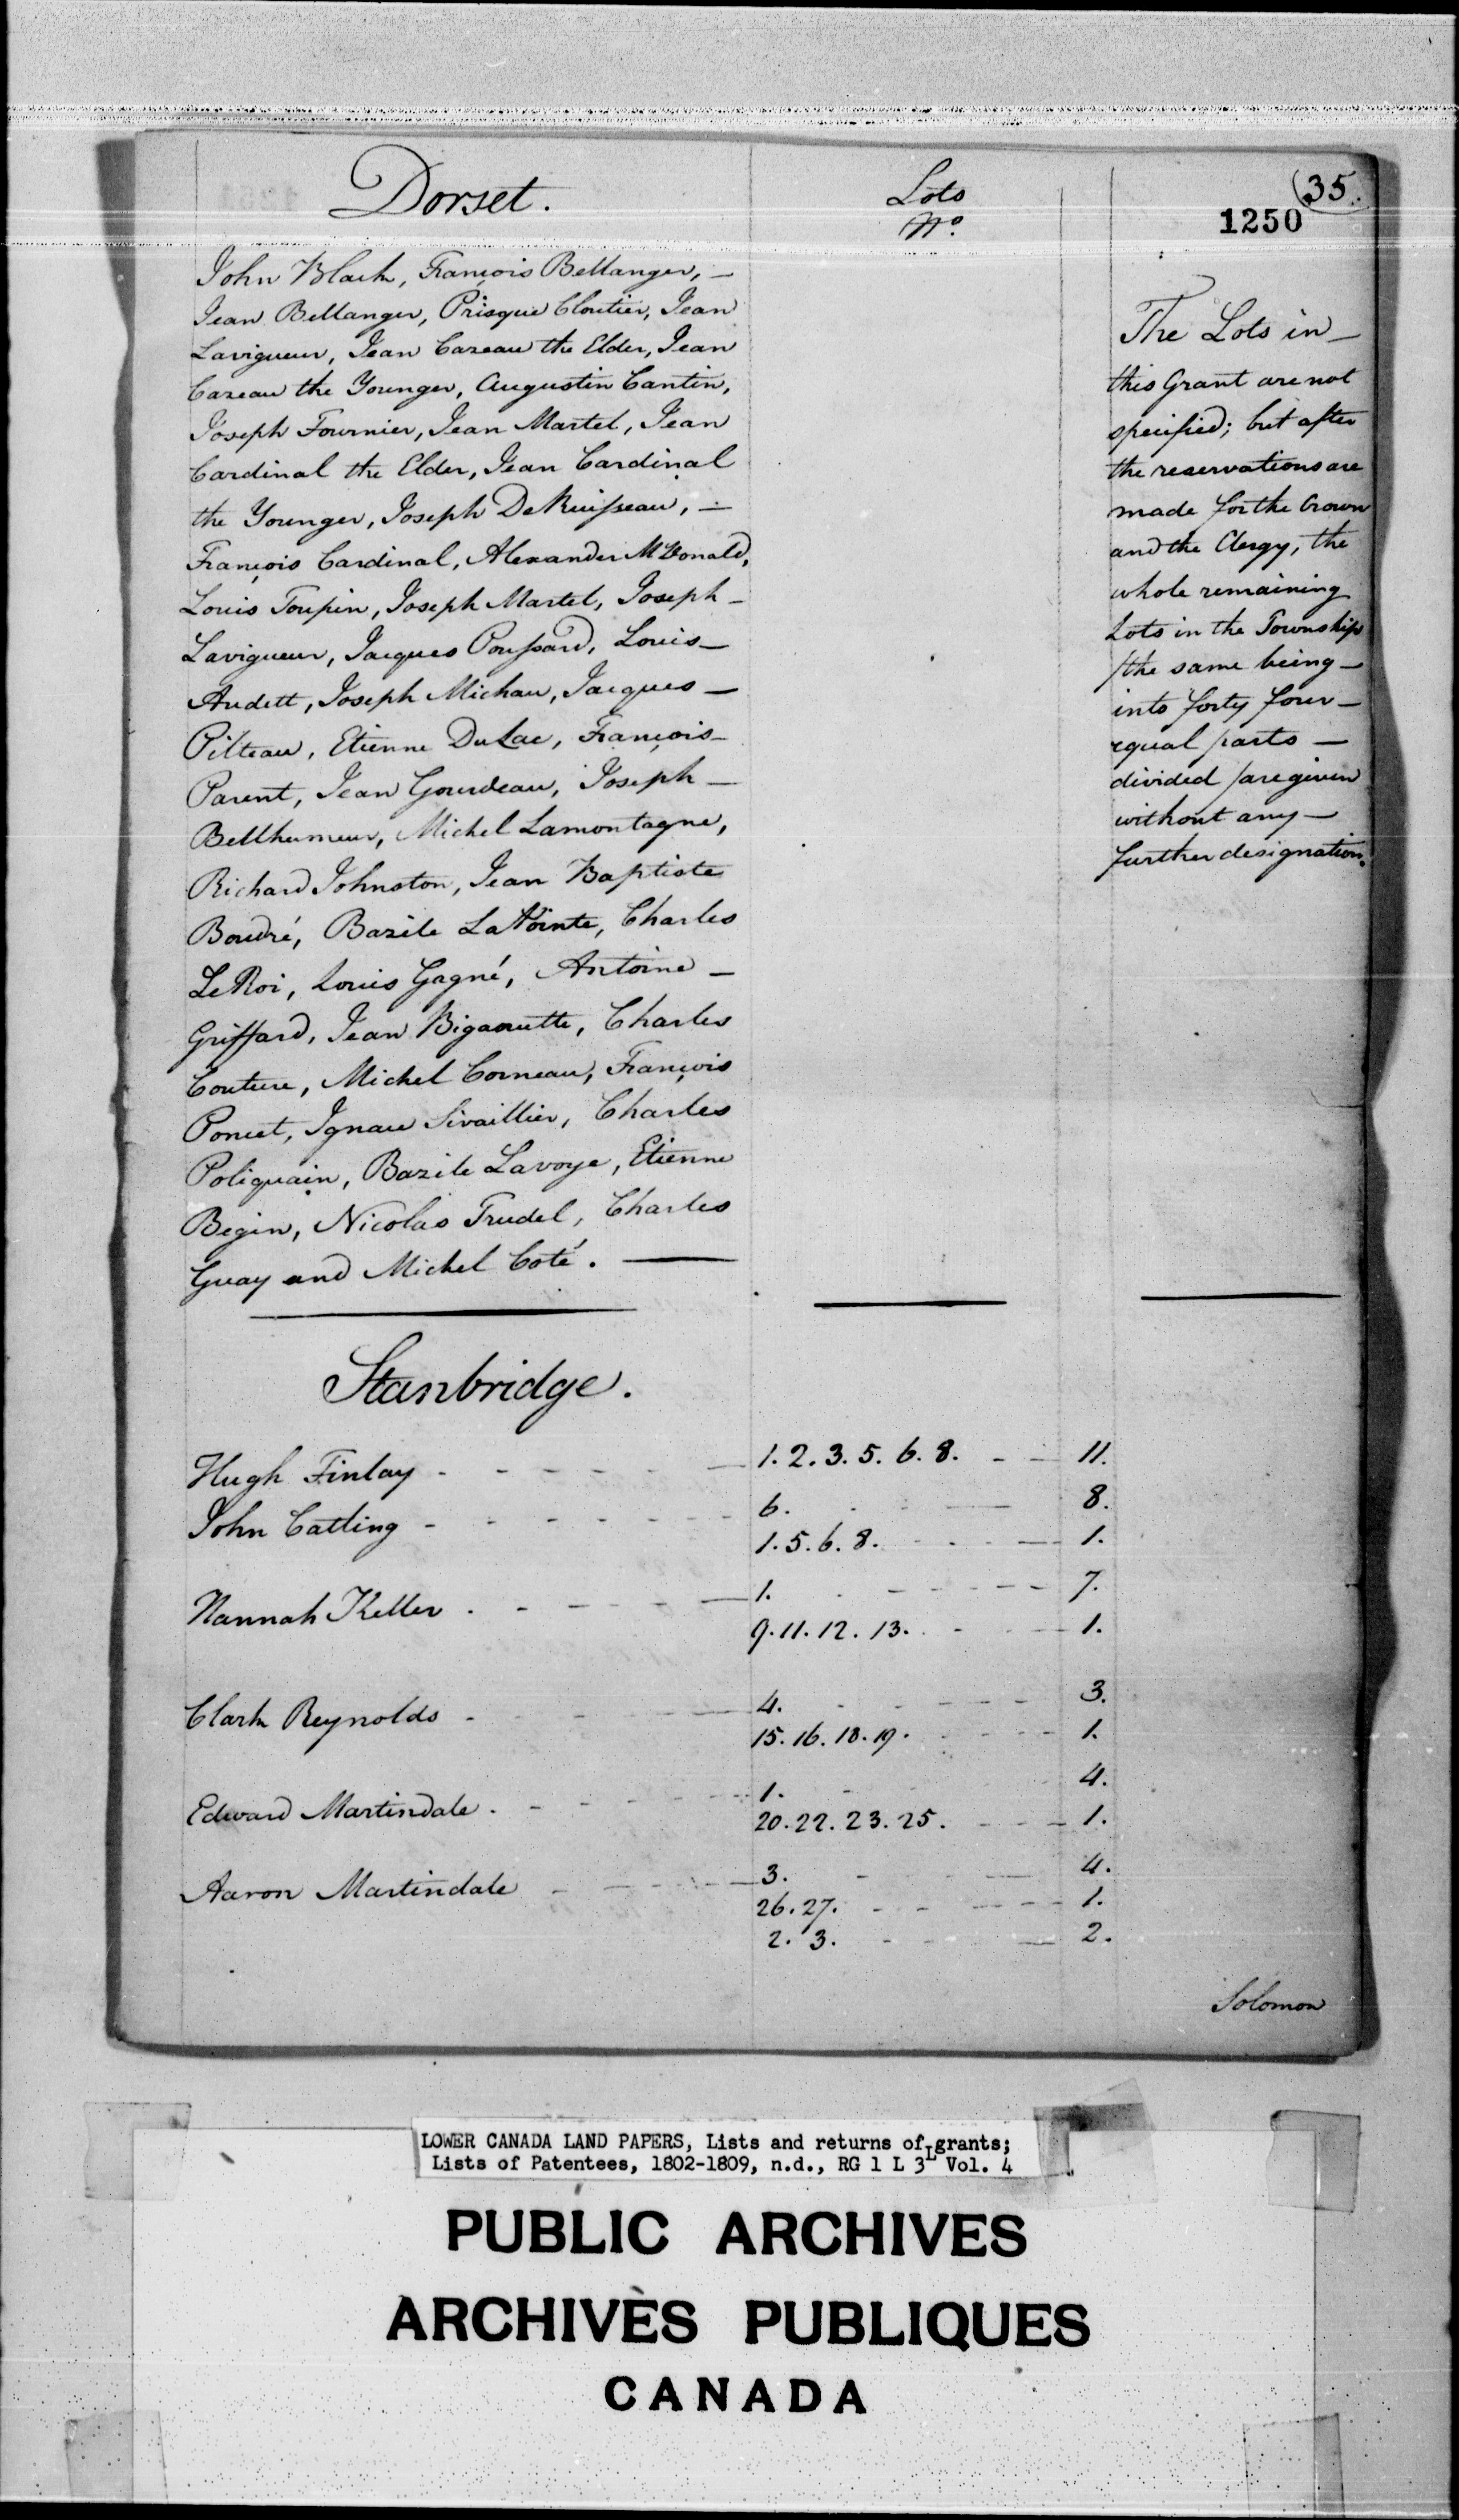 35.
1250
Dorset.
Lots
No.
John Black, François Bellanger, —
Jean Bellanger, Prisque Cloutier, Jean
Lavigueur, Jean Cazeau the Elder, Jean
Cazeau the Younger, Augustin Cantin,
Joseph Fournier, Jean Martel, Jean
Cardinal the Elder, Jean Cardinal
the Younger, Joseph DeRuisseau, —
François Cardinal, Alexander McDonald,
Louis Toupin, Joseph Martel, Joseph —
Lavigueur, Jacques Poussard, Louis —
Audett, Joseph Michau, Jacques —
Pilteau, Etienne DuLac, François —
Parent, Jean Gourdeau, Joseph —
Bellhumeur, Michel Lamontagne,
Richard Johnston, Jean Baptiste
Boudré, Bazile LaPointe, Charles
LeRoi, Louis Gagné, Antoine —
Griffard, Jean Bigaoutte, Charles
Couture, Michel Corneau, François
Poncet, Ignace Sivaillier, Charles
Poliquain, Bazile Lavoye, Etienne
Begin, Nicolas Trudel, Charles
Guay and Michel Coté. —
The Lots in —
this Grant are not
specified; but after
the reservations are
made for the Crown
and the Clergy, the
whole remaining
Lots in the Township
/the same being —
into forty four —
equal parts —
divided/are given
without any —
further designation.
Stanbridge.
Hugh Finlay - - - - - - 1. 2. 3. 5. 6. 8. - - 11.
John Catling - - - - - - 6. - - - 8.
1. 5. 6. 8. - - - 1.
Hannah Keller . - - - - 1. - - - - 7.
9. 11. 12. 13. - - 1.
Clark Reynolds - - - - 4. - - - - 3.
15. 16. 18. 19. - - - 1.
Edward Martindale . - - - - 1. - - - 4.
20. 22. 23. 25. - - - 1.
Aaron Martindale - - - - 3. - - - 4.
26. 27. - - - - 1.
2. 3. - - - 2.
Solomon
LOWER CANADA LAND PAPERS, Lists and returns of grants;
Lists of Patentees, 1802-1809, n.d., RG 1 L 3L Vol. 4
PUBLIC ARCHIVES
ARCHIVES PUBLIQUES
CANADA